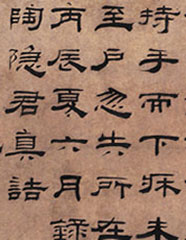 持手而下牀未
至户忽失所在
丙辰夏六月録
陶隱君真誥